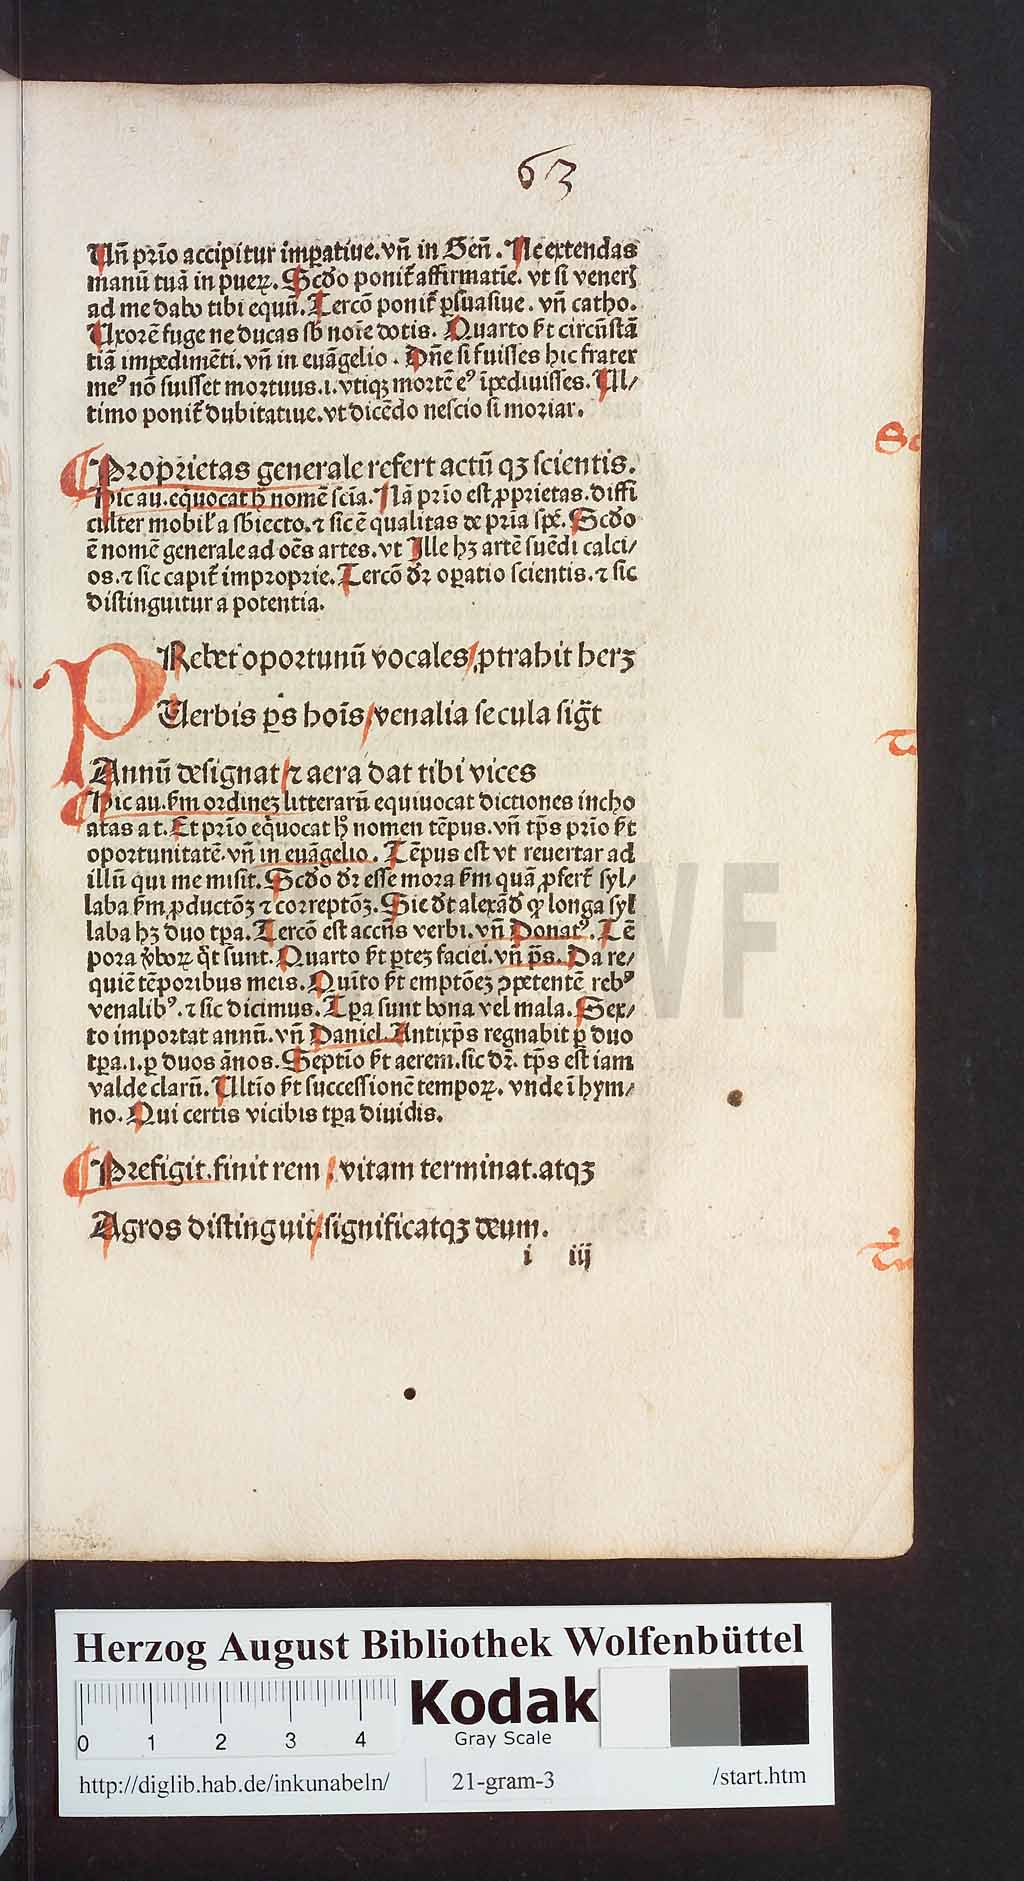 63
Uñ prīo accipitur imꝑatiue. vñ in Geñ. Ne extendas
manū tuā in pueꝝ. Scďo ponit᷑ affirmatīe. vt si veneř
ad me dabo tibi equū. Tercō ponit᷑ ꝑsuasiue. vñ catho.
Uxorē fuge ne ducas sb noīe dotis. Quarto ſt circūstā
tiā impedimēti. vñ in euāgelio. Dñe si fuisses hic frater
meꝰ nō fuisset mortuus. i. vtiqꝫ mortē eꝰ īpediuisses. Ul/
timo ponit᷑ dubitatiue. vt dicēdo nescio si moriar.
Proprietas generale refert actū qꝫ scientis.
Hic au. eq̄uocat h̄ nomē scīa. Nā prīo est ꝓprietas. diffi
culter mobiľ a sbiecto. ⁊ sic ē qualitas de pria spē. Scďo
ē nomē generale ad oēs artes. vt Ille hꝫ artē suēdi calci/
os. ⁊ sic capit᷑ improprie. Tercō dr̄ oꝑatio scientis. ⁊ sic
distinguitur a potentia.
PRebet oportunū vocales/ ꝓtrahit herꝫ
Uerbis ꝑs hoīs/ venalia secula sig̃t
Annū designat/ ⁊ aera dat tibi vices
Hic au. ſm ordinez litterarū equiuocat dictiones incho
atas a t. Et prīo eq̄uocat hꝰ nomen tēpus. vñ tp̄s prīo ſt
oportunitatē. vñ in euāgelio. Tēpus est vt reuertar ad
illū qui me misit. Scďo dr̄ esse mora ſm quā ꝓfert᷑ syl/
laba ſm ꝓductōꝫ ⁊ correptōꝫ. Sic ďt alexāď ꝙ longa syl
laba hꝫ duo tꝑa. Tercō est accñs verbi. vñ Donatꝰ. Tē
pora v̓boꝝ q̄t sunt. Quarto ſt ꝑtez faciei. vñ p̄s. Da re/
quiē tēporibus meis. Quīto ſt emptōez ꝯpetentē rebꝰ
venalibꝰ. ⁊ sic dicimus. Tꝑa sunt bona vel mala. Sex/
to importat annū. vñ Daniel. Antixp̄s regnabit ꝑ duo
tꝑa. i. ꝑ duos ānos. Septīo ſt aerem. sic dr̄. tp̄s est iam
valde clarū. Ultīo ſt successionē tempoꝝ. vnde ī hym/
no. Qui certis vicibis tꝑa diuidis.
Prefigit. finit rem/ vitam terminat. atqꝫ
Agros distinguit/ significatqꝫ deum.
i iij
Herzog August Bibliothek Wolfenbüttel
0 1 2 3 4
Kodak
Gray Scale
http://diglib.hab.de/inkunabeln/ 21-gram-3 /start.htm